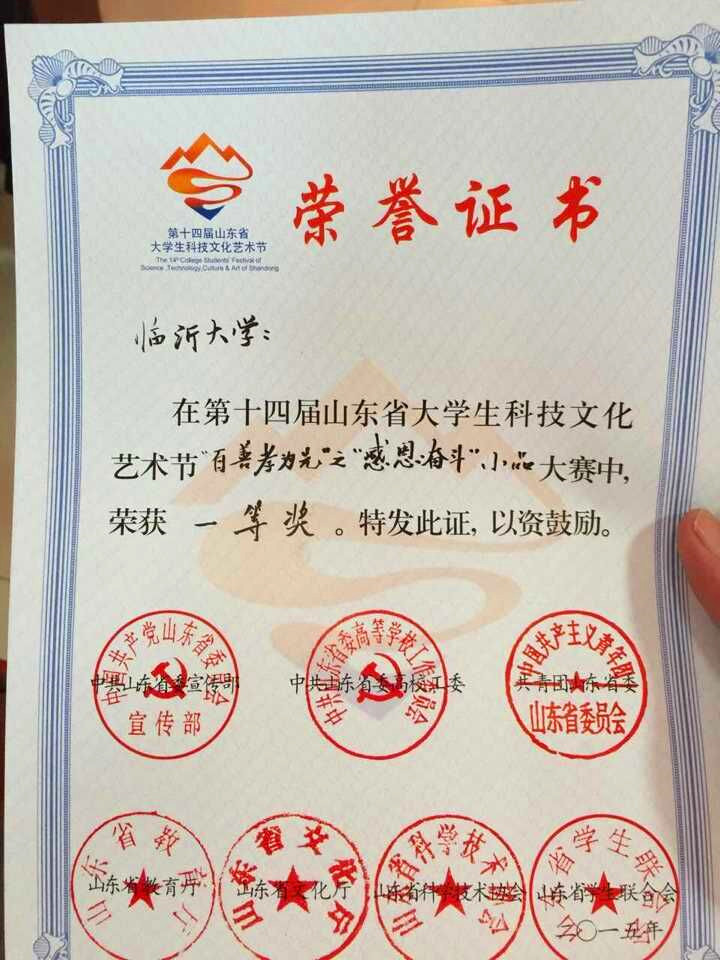 荣誉证书
第十四届山东省
大学生科技文化艺术节
The 14th College Students' Festival of
Science ,Technology,Culture & Art of Shandong
临沂大学:
在第十四届山东省大学生科技文化
艺术节“百善孝为先”之“感恩·奋斗”小品大赛中,
荣获 一等奖 。特发此证,以资鼓励。
中国共产党山东省委员会
宣传部
中共山东省委宣传部
中共山东省委高等学校工作委员会
中共山东省委高校工委
中国共产主义青年团
山东省委员会
共青团山东省委
山东省教育厅
山东省教育厅
山东省文化厅
山东省文化厅
山东省科学技术协会
山东省科学技术协会
山东省学生联合会
山东省学生联合会
二〇一五年